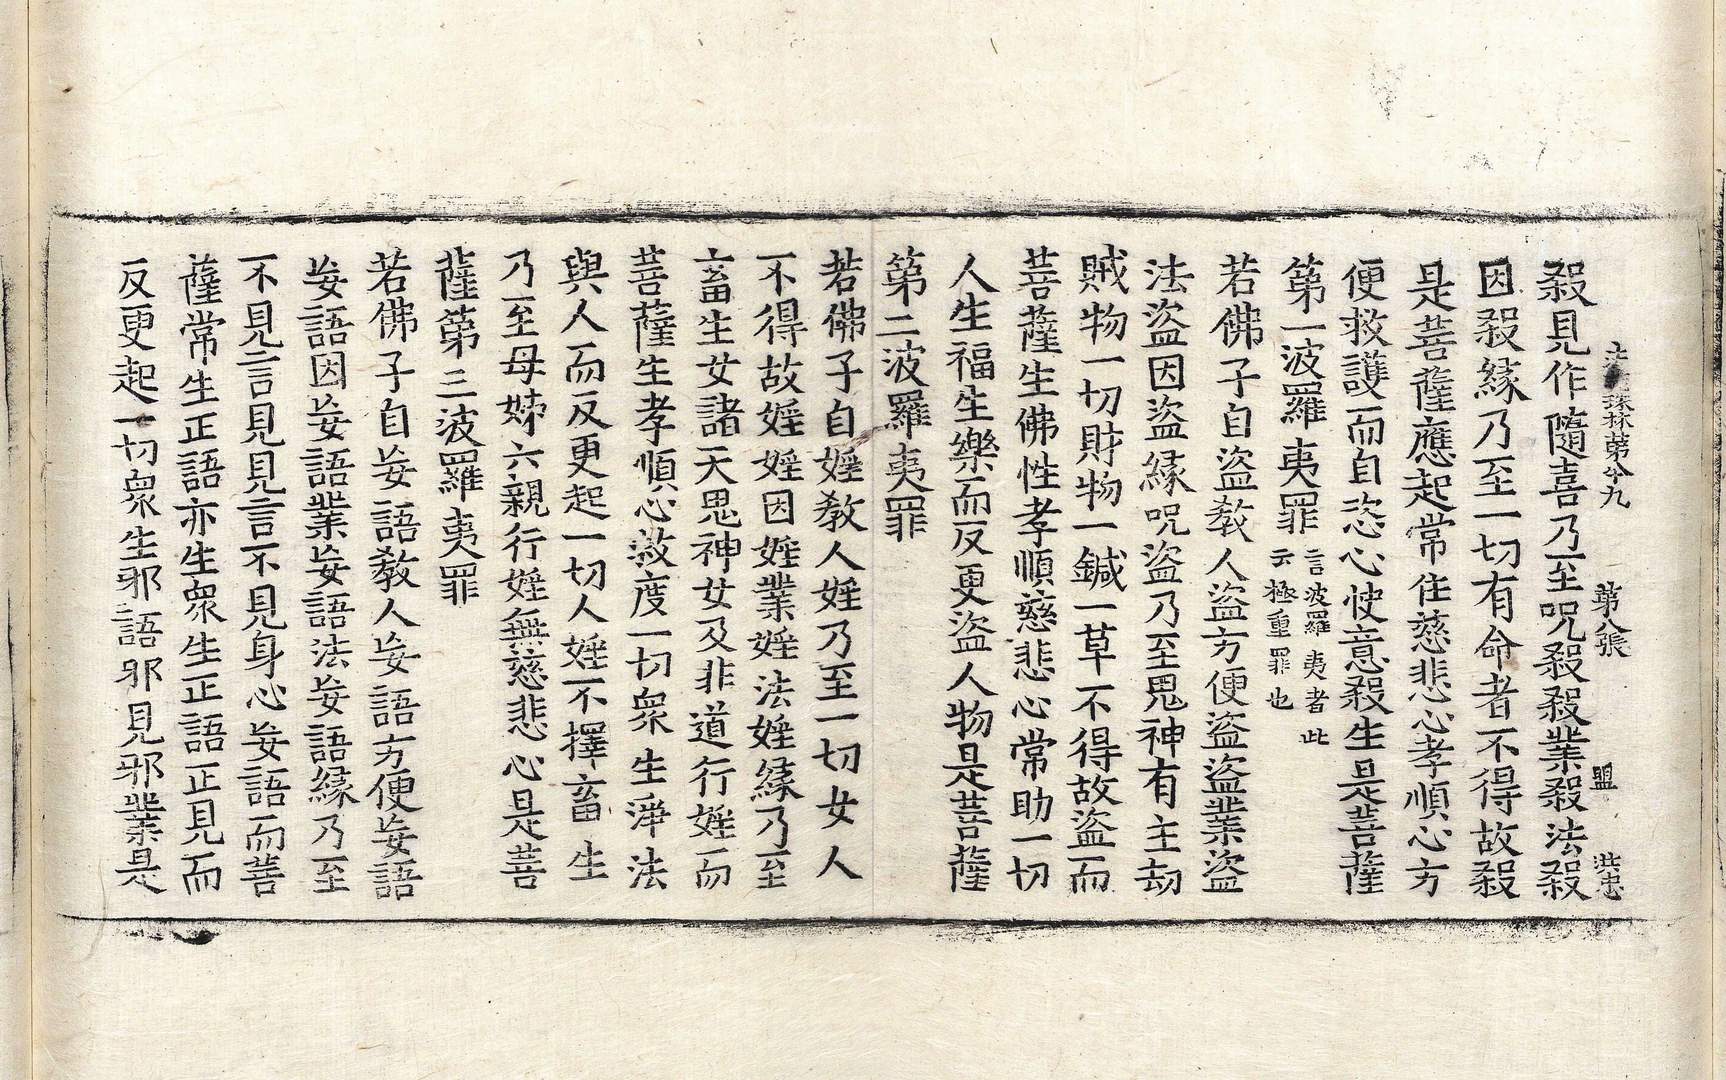 珠林第 九 第八張 盟 洪忠
殺見作隨喜乃至呪殺殺業殺法殺
因殺緣乃至一切有命者不得故殺
是菩薩應起常住慈悲心孝順心方
便救護而自恣心快意殺生是菩薩
第一波羅夷罪
言波羅夷者此
云極重罪也
若佛子自盜教人盜方便盜盜業盜
法盜因盜緣呪盜乃至鬼神有主劫
賊物一切財物一鍼一草不得故盜而
菩薩生佛性孝順慈悲心常助一切
人生福生樂而反更盜人物是菩薩
第二波羅夷罪
若佛子自婬教人婬乃至一切女人
不得故婬婬因婬業婬法婬緣乃至
畜生女諸天鬼神女及非道行婬而
菩薩生孝順心救度一切衆生淨法
與人而反更起一切人婬不擇畜生
乃至母姊六親行婬無慈悲心是菩
薩第三波羅夷罪
若佛子自妄語教人妄語方便妄語
妄語因妄語業妄語法妄語緣乃至
不見言見見言不見身心妄語而菩
薩常生正語亦生衆生正語正見而
反更起一切衆生邪語邪見邪業是